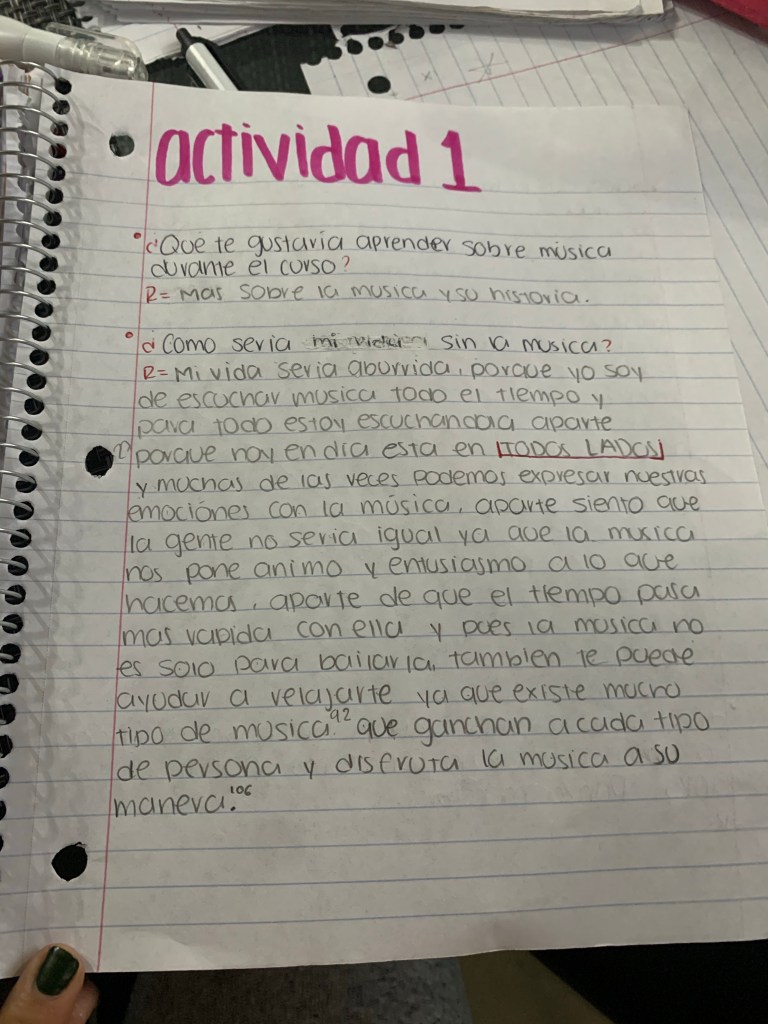 actividad 1
• ¿Que te gustaria aprender sobre música
durante el curso?
R= Mas sobre la musica y su historia.
• ¿Como seria mi vida sin la musica?
R= Mi vida seria aburrida, porque yo soy
de escuchar musica todo el tiempo y
para todo estoy escuchandola aparte
porque hoy en dia esta en TODOS LADOS
y muchas de las veces podemos expresar nuestras
emociónes con la música, aparte siento que
la gente no seria igual ya que la musica
nos pone animo y entusiasmo a lo que
hacemos, aparte de que el tiempo pasa
mas rapida con ella y pues la musica no
es solo para bailarla, tambien te puede
ayudar a relajarte ya que existe mucho
tipo de musica 92 que ganchan a cada tipo
de persona y disfruta la musica a su
manera. 106